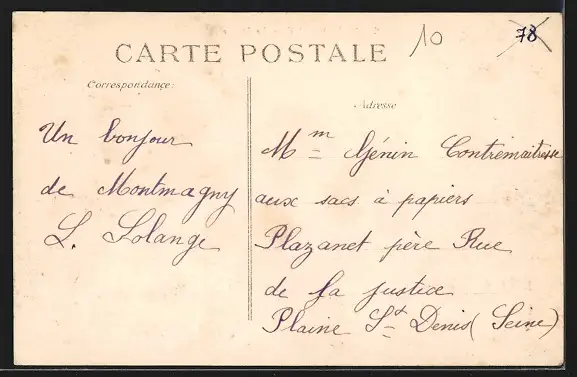 10
78
CARTE POSTALE
Correspondance:
Adresse
Un bonjour
de Montmagny
L. Solange
Mm Génin Contremaitresse
aux sacs à papiers
Plazanet père Rue
de la justice
Plaine St Denis (Seine)